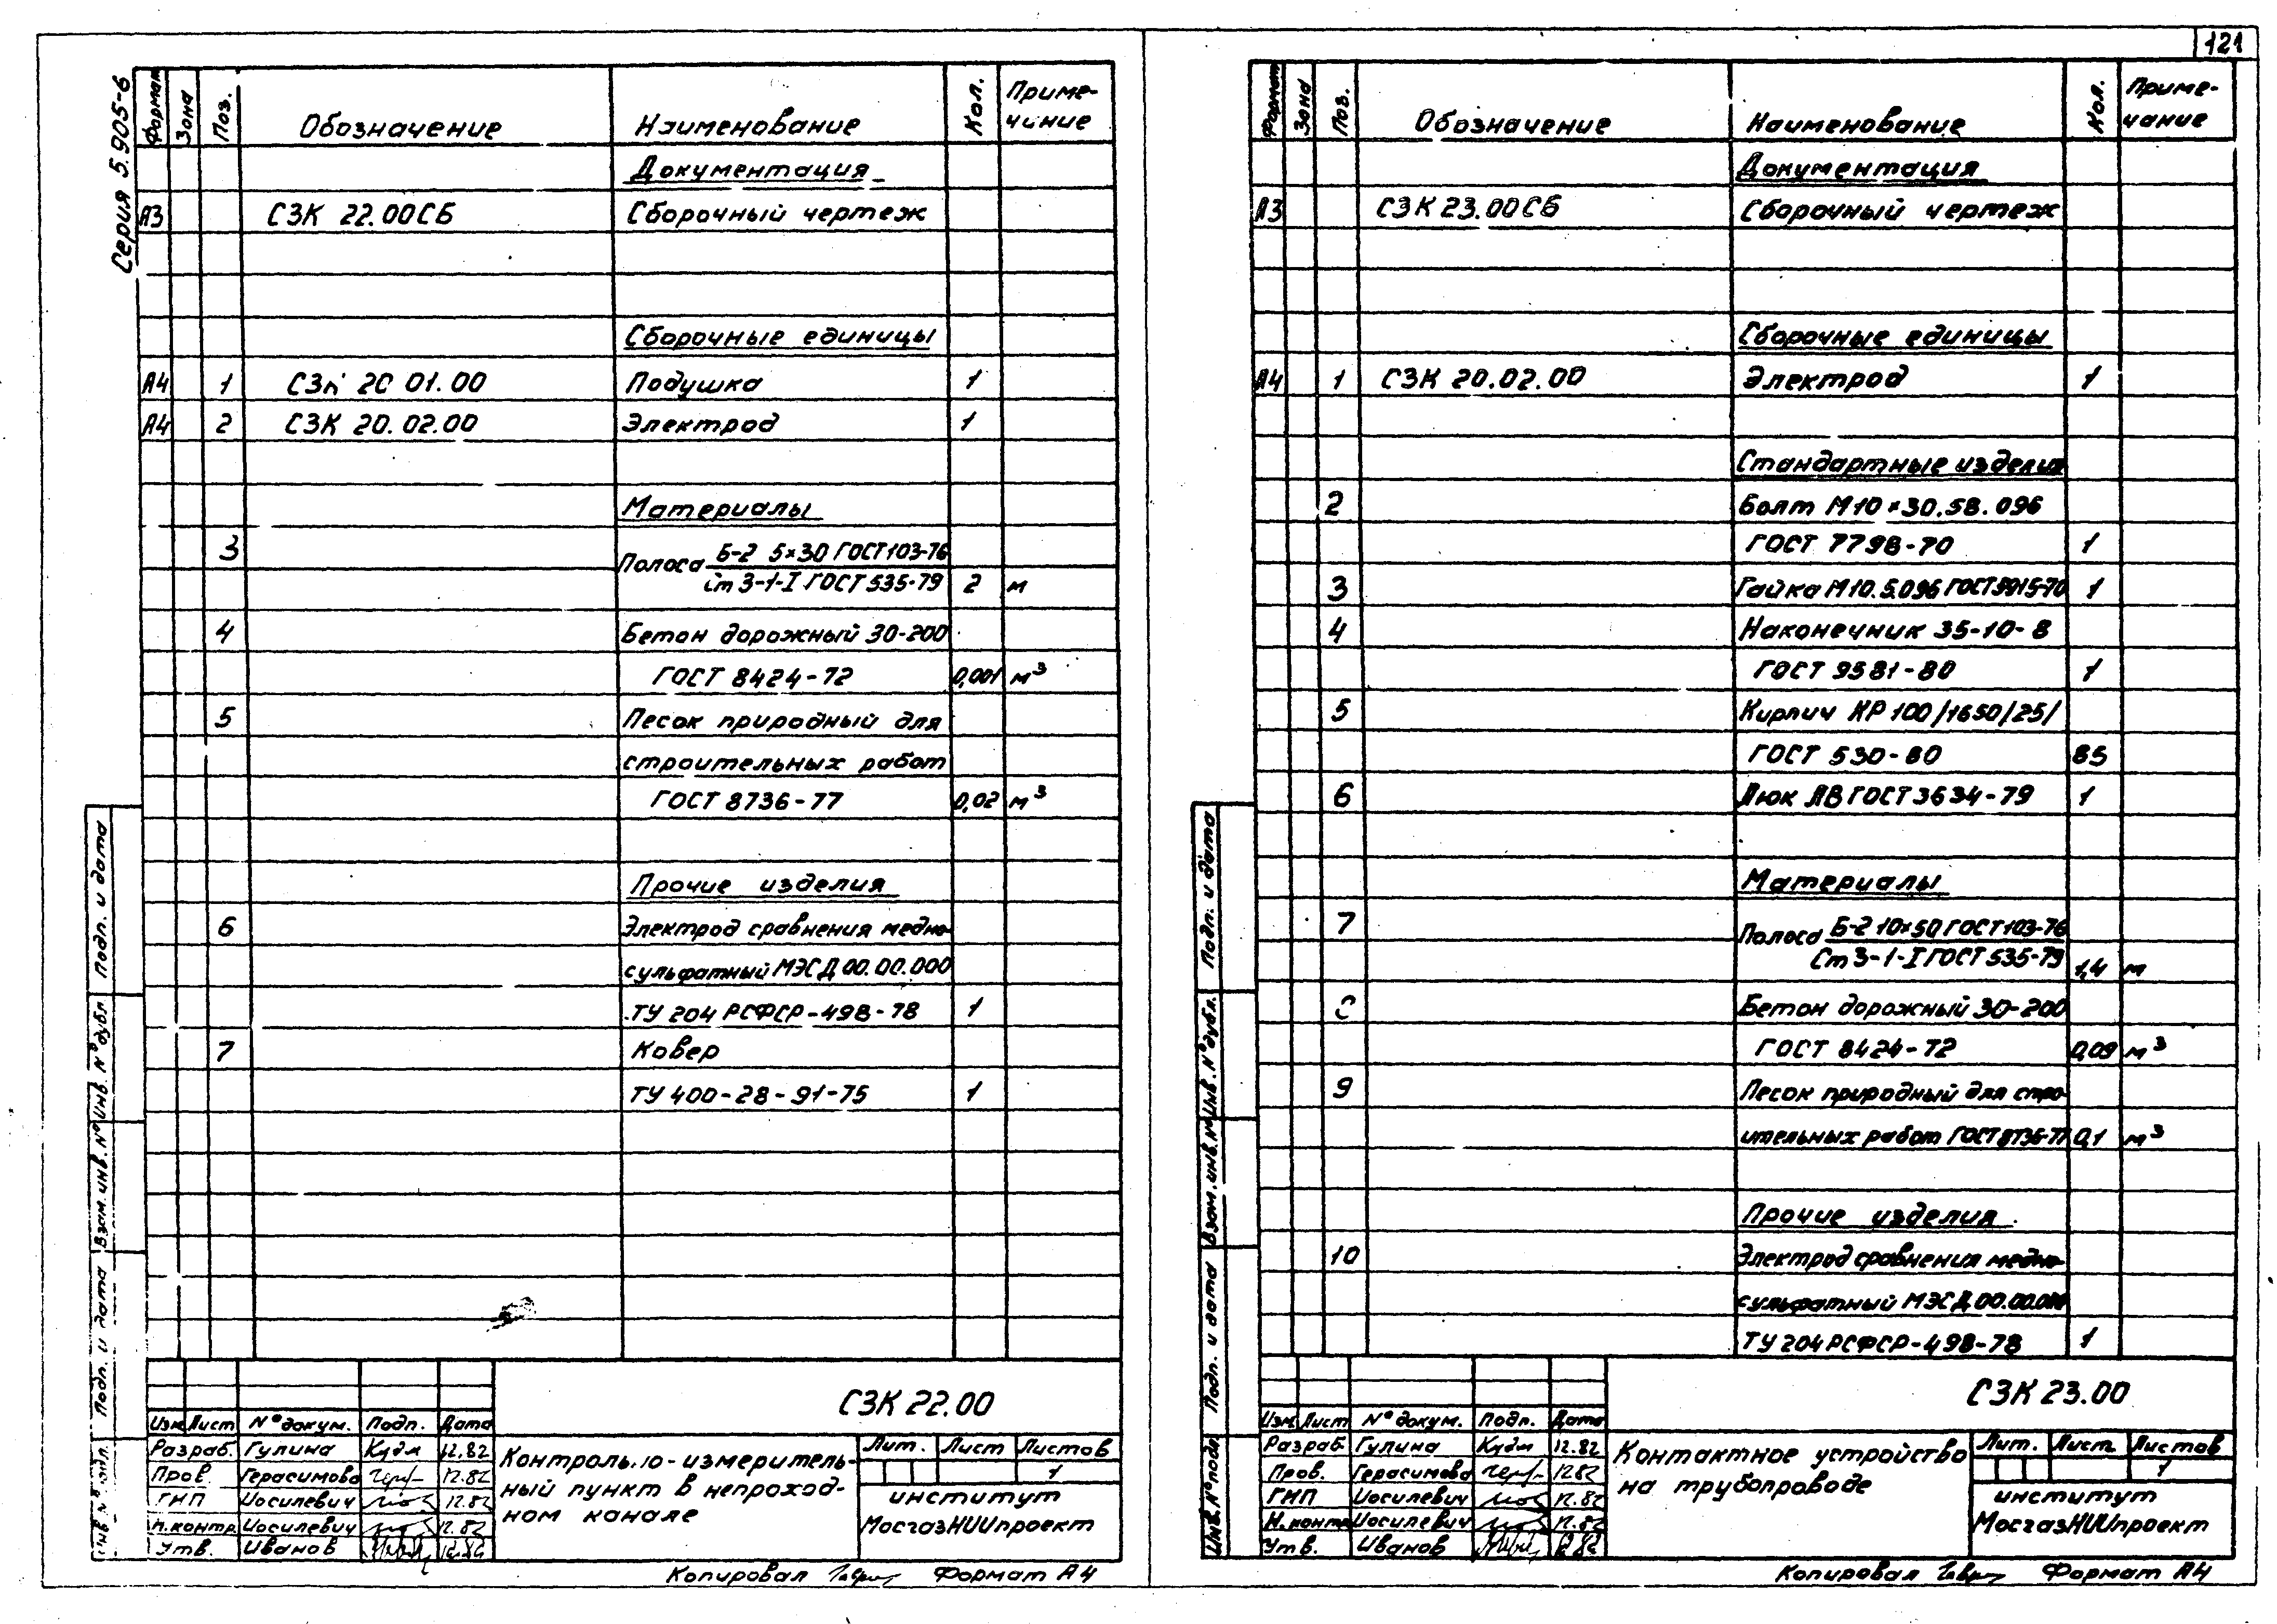 121
Серия 5.905-6
Формат Зона Поз. Обозначение Наименование Кол. Приме-
чание
Документация
А3 СЗК 22.00СБ Сборочный чертеж
Сборочные единицы
А4 1 СЗК 20 01.00 Подушка 1
А4 2 СЗК 20.02.00 Электрод 1
Материалы
3 Полоса Б-2 5×30 ГОСТ 103-76
Ст 3-1-I ГОСТ 535-79 2 м
4 Бетон дорожный 30-200
ГОСТ 8424-72 0,001 м³
5 Песок природный для
строительных работ
ГОСТ 8736-77 0,02 м³
Прочие изделия
6 Электрод сравнения медно-
сульфатный МЭСД 00.00.000
ТУ 204 РСФСР-498-78 1
7 Ковер
ТУ 400-28-91-75 1
Подп. и дата
Инв. № дубл.
Взам. инв. №
Подп. и дата
Инв. № подл.
СЗК 22.00
Изм Лист № докум. Подп. Дата
Разраб. Гулина 12.82
Пров. Герасимова 12.82
ГИП Иосилевич 12.82
Н.контр. Иосилевич 12.82
Утв. Иванов 12.82
Контрольно-измеритель-
ный пункт в непроход-
ном канале
Лит. Лист Листов
1
институт
МосгазНИИпроект
Копировал Формат А4
Формат Зона Поз. Обозначение Наименование Кол. Приме-
чание
Документация
А3 СЗК 23.00СБ Сборочный чертеж
Сборочные единицы
А4 1 СЗК 20.02.00 Электрод 1
Стандартные изделия
2 Болт М10×30.58.096
ГОСТ 7798-70 1
3 Гайка М10.5.096 ГОСТ 5915-70 1
4 Наконечник 35-10-8
ГОСТ 9581-80 1
5 Кирпич КР 100/1650/25/
ГОСТ 530-80 85
6 Люк ЛВ ГОСТ 3634-79 1
Материалы
7 Полоса Б-2 10×50 ГОСТ 103-76
Ст 3-1-I ГОСТ 535-79 1,4 м
8 Бетон дорожный 30-200
ГОСТ 8424-72 0,09 м³
9 Песок природный для стро-
ительных работ ГОСТ 8736-77 0,1 м³
Прочие изделия
10 Электрод сравнения медно-
сульфатный МЭСД 00.00.000
ТУ 204 РСФСР-498-78 1
Подп. и дата
Инв. № дубл.
Взам. инв. №
Подп. и дата
Инв. № подл
СЗК 23.00
Изм Лист № докум. Подп. Дата
Разраб. Гулина 12.82
Пров. Герасимова 12.82
ГИП Иосилевич 12.82
Н.контр. Иосилевич 12.82
Утв. Иванов 12.82
Контактное устройство
на трубопроводе
Лит. Лист Листов
1
институт
МосгазНИИпроект
Копировал Формат А4